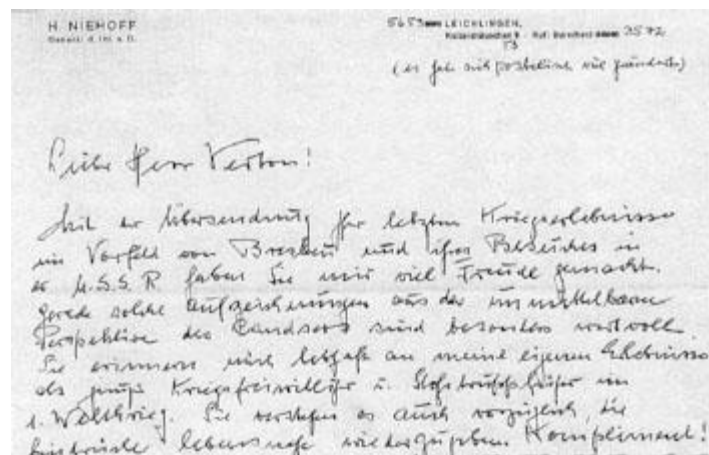 H. NIEHOFF
General d. Inf. a. D.
5653 LEICHLINGEN,
53 3572
(es hat sich postalisch viel geändert)
Lieber Herr Verton!
Mit der Übersendung Ihrer letzten Kriegserlebnisse
im Vorfeld von Breslau und Ihres Besuches in
der U.S.S.R haben Sie mir viel Freude gemacht.
Gerade solche Aufzeichnungen aus der unmittelbaren
Perspektive des Landsers sind besonders wertvoll
Sie erinnern mich lebhaft an meine eigenen Erlebnisse
als junger Kriegsfreiwilliger u. Stoßtruppführer im
1. Weltkrieg. Sie verstehen es auch vorzüglich, die
Eindrücke lebensnahe wiederzugeben. Kompliment!